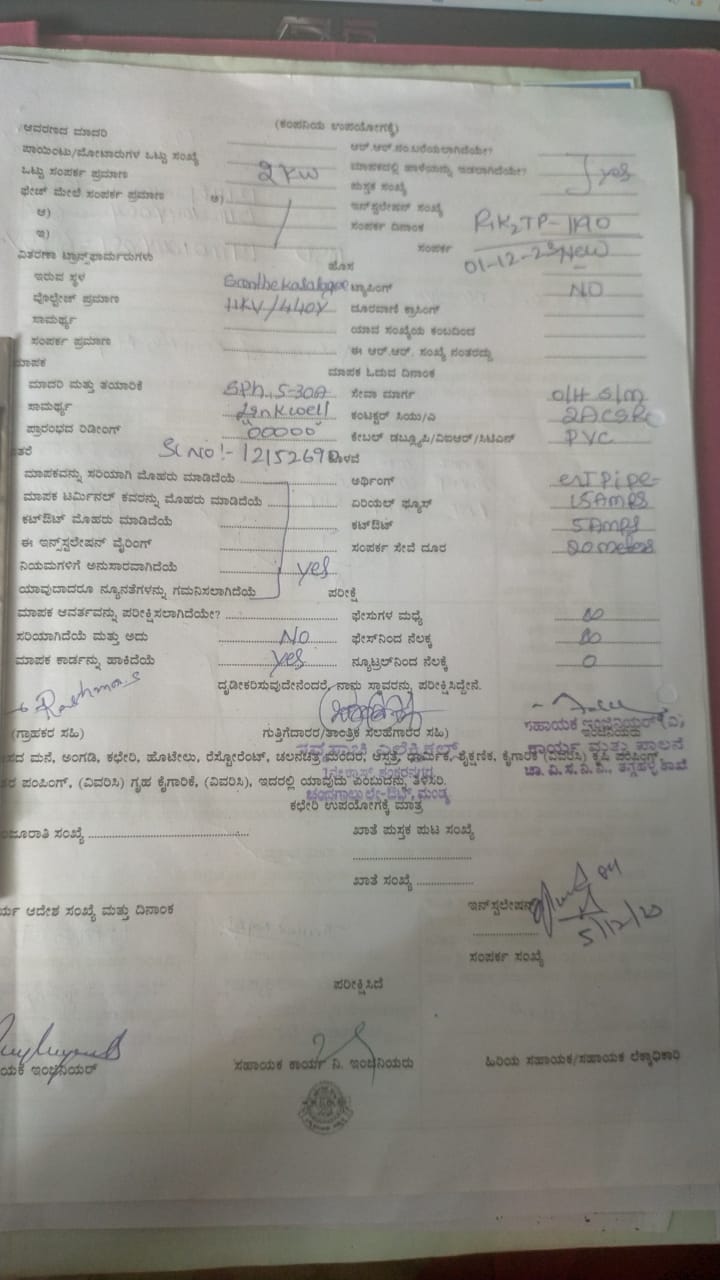 (ಕಂಪನಿಯ ಉಪಯೋಗಕ್ಕೆ)
ಆವರಣದ ಮಾದರಿ ಆರ್.ಆರ್.ಸಂ.ಬರೆಯಲಾಗಿದೆಯೇ?
ಪಾಯಿಂಟು/ಮೋಟಾರುಗಳ ಒಟ್ಟು ಸಂಖ್ಯೆ ಮಾಪಕದಲ್ಲಿ ಹಾಳೆಯನ್ನು ಇಡಲಾಗಿದೆಯೇ? yes
ಒಟ್ಟು ಸಂಪರ್ಕ ಪ್ರಮಾಣ 2KW ಪುಸ್ತಕ ಸಂಖ್ಯೆ
ಫೇಚ್ ಮೇಲೆ ಸಂಪರ್ಕ ಪ್ರಮಾಣ ಇನ್‌ಸ್ಟಲೇಷನ್ ಸಂಖ್ಯೆ
ಆ) ಸಂಪರ್ಕ ದಿನಾಂಕ
ಇ) ಸಂಪರ್ಕ 01-12-23 New
ವಿತರಣಾ ಟ್ರಾನ್ಸ್‌ಫಾರ್ಮರುಗಳು ಹೊಸ
ಇರುವ ಸ್ಥಳ ಟ್ಯಾಪಿಂಗ್ NO
ವೊಲ್ಟೇಜ್ ಪ್ರಮಾಣ 11KV/440V ದೂರವಾಣಿ ಕ್ರಾಸಿಂಗ್
ಸಾಮರ್ಥ್ಯ ಯಾವ ಸಂಖ್ಯೆಯ ಕಂಬದಿಂದ
ಸಂಪರ್ಕ ಪ್ರಮಾಣ ಈ ಆರ್.ಆರ್. ಸಂಖ್ಯೆ ನಂತರದ್ದು
ಮಾಪಕ ಮಾಪಕ ಓದುವ ದಿನಾಂಕ
ಮಾದರಿ ಮತ್ತು ತಯಾರಿಕೆ SPh, 5-30A ಸೇವಾ ಮಾರ್ಗ O/H S/m
ಸಾಮರ್ಥ್ಯ Linkwell ಕಂಟಕ್ಟರ್ ಸಿಯು/ಎ
ಪ್ರಾರಂಭದ ರಿಡೀಂಗ್ "00000" ಕೇಬಲ್ ಡಬ್ಲ್ಯೂಪಿ/ವಿಐಆರ್/ಸಿಟಿಎಸ್ PVC
Sl No:- ಒಳಪೆ
ಮಾಪಕವನ್ನು ಸರಿಯಾಗಿ ಮೊಹರು ಮಾಡಿದೆಯೆ ಅರ್ಥಿಂಗ್
ಮಾಪಕ ಟರ್ಮಿನಲ್ ಕವರನ್ನು ಮೊಹರು ಮಾಡಿದೆಯೆ ಏರಿಯಲ್ ಫ್ಯೂಸ್ 15Amps
ಕಟ್‌ಔಟ್ ಮೊಹರು ಮಾಡಿದೆಯೆ ಕಟ್‌ಔಟ್ 5Amps
ಈ ಇನ್‌ಸ್ಟಲೇಷನ್ ವೈರಿಂಗ್ ಸಂಪರ್ಕ ಸೇವೆ ದೂರ 20 meters
ನಿಯಮಗಳಿಗೆ ಅನುಸಾರವಾಗಿದೆಯೆ yes
ಯಾವುದಾದರೂ ನ್ಯೂನತೆಗಳನ್ನು ಗಮನಿಸಲಾಗಿದೆಯೆ ಪರೀಕ್ಷೆ
ಮಾಪಕ ಆವರ್ತವನ್ನು ಪರೀಕ್ಷಿಸಲಾಗಿದೆಯೇ? ಫೇಸುಗಳ ಮಧ್ಯೆ ∞
ಸರಿಯಾಗಿದೆಯೆ ಮತ್ತು ಅದು No ಫೇಸ್‌ನಿಂದ ನೆಲಕ್ಕೆ ∞
ಮಾಪಕ ಕಾರ್ಡನ್ನು ಹಾಕಿದೆಯೆ yes ನ್ಯೂಟ್ರಲ್‌ನಿಂದ ನೆಲೆಕ್ಕೆ 0
ದೃಡೀಕರಿಸುವುದೇನೆಂದರೆ, ನಾನು ಸ್ಥಾವರನ್ನು ಪರೀಕ್ಷಿಸಿದ್ದೇನೆ.
(ಗ್ರಾಹಕರ ಸಹಿ) ಗುತ್ತಿಗೆದಾರರ/ತಾಂತ್ರಿಕ ಸಲಹೆಗಾರರ ಸಹಿ) ಸಹಾಯಕ ಇಂಜಿನಿಯರ್ (ವಿ),
ಕಾರ್ಯ ಮತ್ತು ಪಾಲನೆ
ಸದ ಮನೆ, ಅಂಗಡಿ, ಕಛೇರಿ, ಹೋಟೇಲು, ರೆಸ್ಟೋರೆಂಟ್, ಚಲನಚಿತ್ರ ಮಂದಿರ, ಆಸ್ಪತ್ರೆ, ಧಾರ್ಮಿಕ, ಶೈಕ್ಷಣಿಕ, ಕೈಗಾರಿಕೆ (ವಿವರಿಸಿ) ಕೃಷಿ ಪಂಪಿಂಗ್,
ಪಂಪಿಂಗ್, (ವಿವರಿಸಿ) ಗೃಹ ಕೈಗಾರಿಕೆ, (ವಿವರಿಸಿ), ಇದರಲ್ಲಿ ಯಾವುದು ಎಂಬುದನ್ನು ತಿಳಿಸಿರಿ.
ಕಛೇರಿ ಉಪಯೋಗಕ್ಕೆ ಮಾತ್ರ
ಜೂರಾತಿ ಸಂಖ್ಯೆ ಖಾತೆ ಪುಸ್ತಕ ಪುಟ ಸಂಖ್ಯೆ
ಖಾತೆ ಸಂಖ್ಯೆ
ರ್ಯ ಆದೇಶ ಸಂಖ್ಯೆ ಮತ್ತು ದಿನಾಂಕ ಇನ್‌ಸ್ಟಲೇಷನ್
ಸಂಪರ್ಕ ಸಂಖ್ಯೆ
ಪರೀಕ್ಷಿಸಿದೆ
ಯಕ ಇಂಜಿನಿಯರ್ ಸಹಾಯಕ ಕಾರ್ಯ ನಿ. ಇಂಜಿನಿಯರು ಹಿರಿಯ ಸಹಾಯಕ/ಸಹಾಯಕ ಲೆಕ್ಕಾಧಿಕಾರಿ